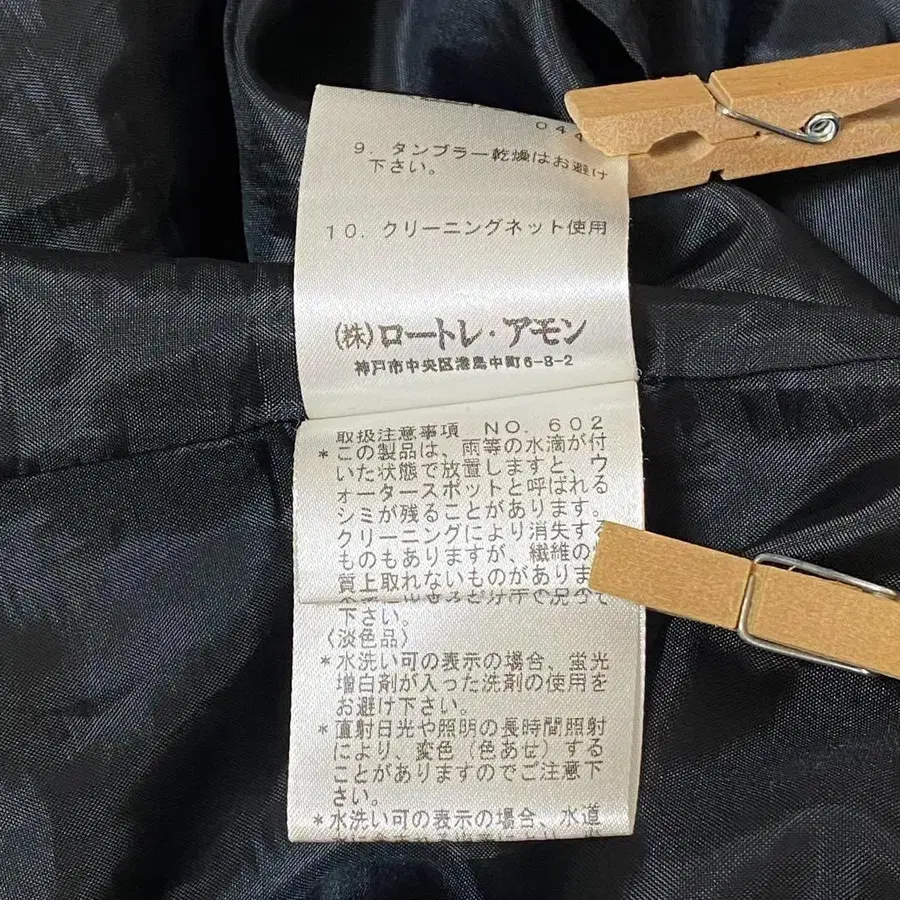 044
9. タンブラー乾燥はお避け
下さい。
10. クリーニングネット使用
(株)ロートレ・アモン
神戸市中央区港島中町6-8-2
取扱注意事項 NO. 602
*この製品は、雨等の水滴が付
いた状態で放置しますと、ウ
ォータースポットと呼ばれる
シミが残ることがあります。
クリーニングにより消失する
ものもありますが、繊維の
質上取れないものがありま
下さい。
〈淡色品〉
*水洗い可の表示の場合、蛍光
増白剤が入った洗剤の使用を
お避け下さい。
*直射日光や照明の長時間照射
により、変色（色あせ）する
ことがありますのでご注意下
さい。
*水洗い可の表示の場合、水道